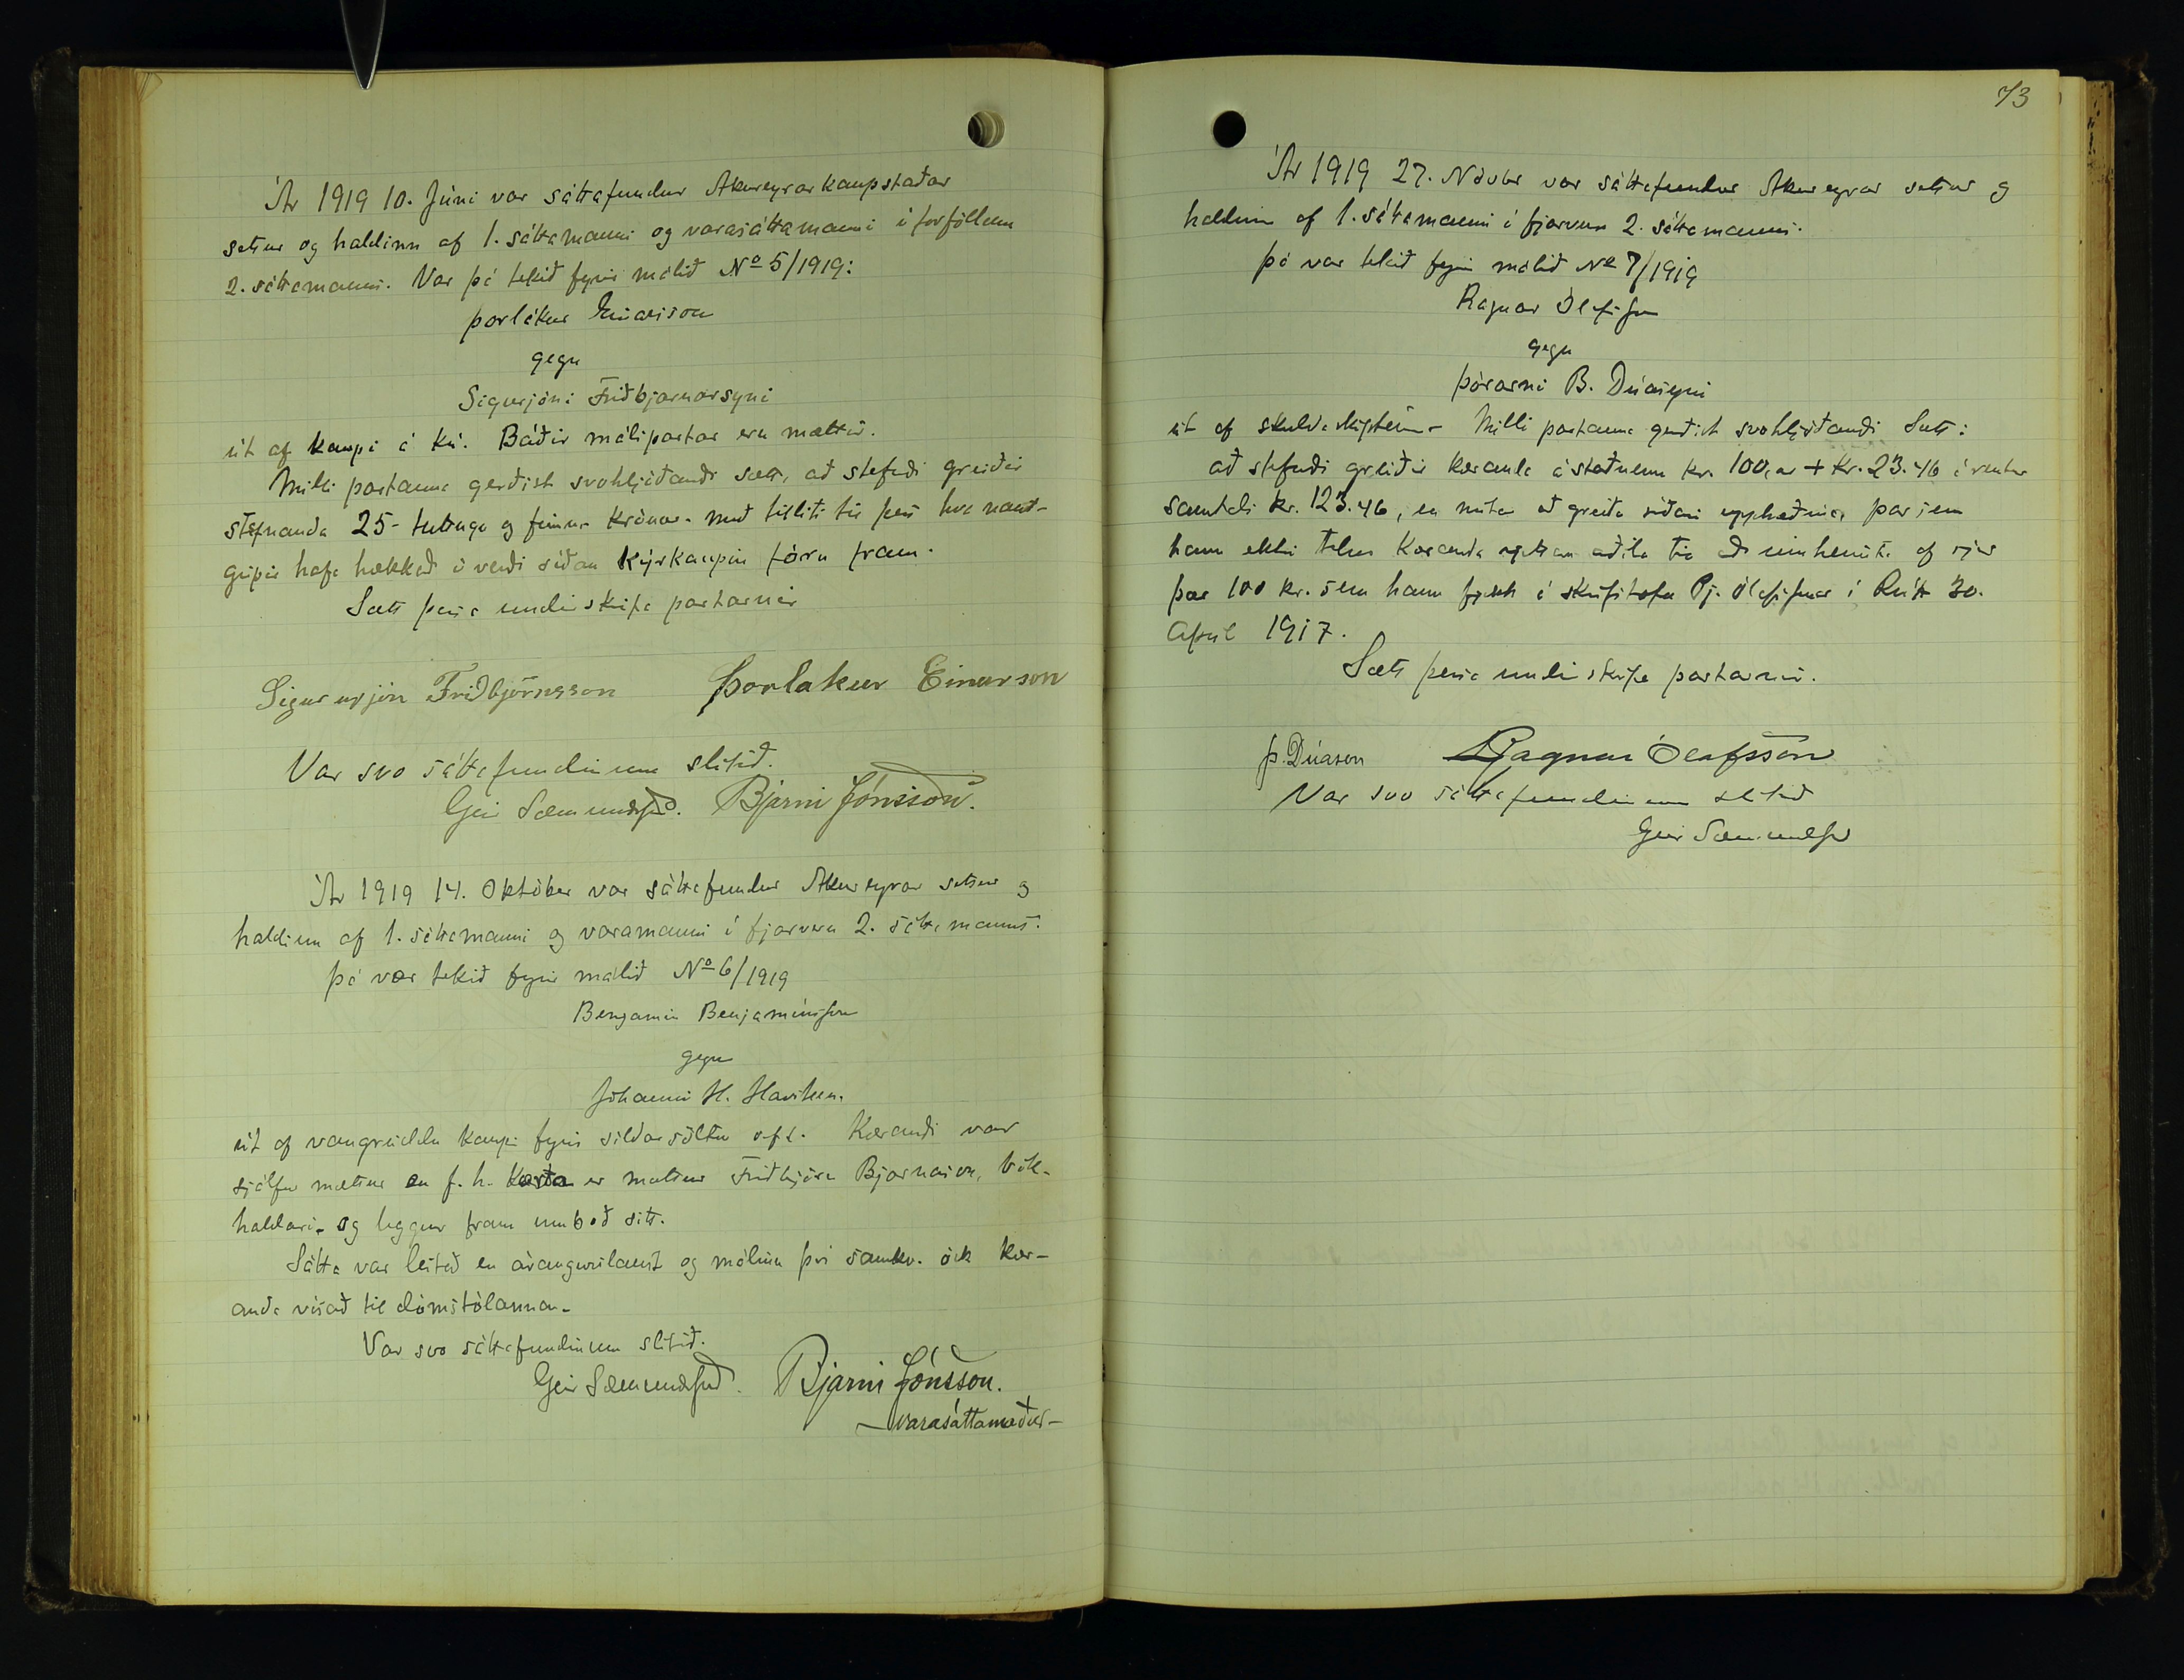 Ár 1919 10. Júní var sáttafundur Akureyrarkaupstaðar
settur og haldinn af 1. sáttamanni og varasáttamanni í forföllum
2. sáttamanns. Var þá tekið fyrir málið No 5/1919:
Þorlákur Einarsson
gegn
Sigurjóni Friðbjarnarsyni
út af kaupi á kú. Báðir málspartar eru mættir.
Milli partanna gerðist svohljóðandi sætt, að stefndi greiðir
stefnanda 25 - tuttugu og fimm - krónur - með tilliti til þess hve naut-
gripir hafa hækkað í verði síðan kýrkaupin fóru fram.
Sætt þessa undirskrifa partarnir
Sigururjón Friðbjörnsson Þorlakur Einarson
Var svo sáttafundinum slitið.
Geir Sæmundsson. Bjarni Jónsson.
Ár 1919 14. Október var sáttafundur Akureyrar settur og
haldinn af 1. sáttamanni og varamanni í fjarveru 2. sáttamanns.
Þá var tekið fyrir málið No 6/1919
Benjamín Benjamínsson
gegn
Jóhanni H. Havsteen.
út af vangreiddu kaupi fyrir síldarsöltun o.fl. Kærandi var
sjálfur mættur en f. h. kærða er mættur Friðbjörn Bjarnason, bók-
haldari - og leggur fram umboð sitt.
Sátta var leitað en árangurslaust og málinu því samkv. ósk kær-
anda vísað til dómstólanna.
Var svo sáttafundinum slitið.
Geir Sæmundsson. Bjarni Jónsson.
- varasáttamaður -
73
Ár 1919 27. Nóvbr var sáttafundur Akureyrar settur og
haldinn af 1. sáttamanni í fjarveru 2. sáttamanns.
Þá var tekið fyrir málið No 7/1919
Ragnar Ólafsson
gegn
Þórarni B. Dúasyni
út af skuldaskiptum - Milli partanna gerðist svohljóðandi Sætt:
að stefndi greiðir kæranda á staðnum kr. 100,00 + kr. 23.46 í rentur
samtals kr. 123.46, en neitar að greiða síðari upphæðina, þar sem
hann ekki telur kæranda rjettan aðila til að innheimta af sjer
þær 100 kr. sem hann fjekk á skrifstofu Pj. Ólafssonar í Rvík 30.
Apríl 1917.
Sætt þessa undirskrifa partarnir.
Þ. Dúason Ragnar Ólafsson
Var svo sáttafundinum slitið
Geir Sæmundsson